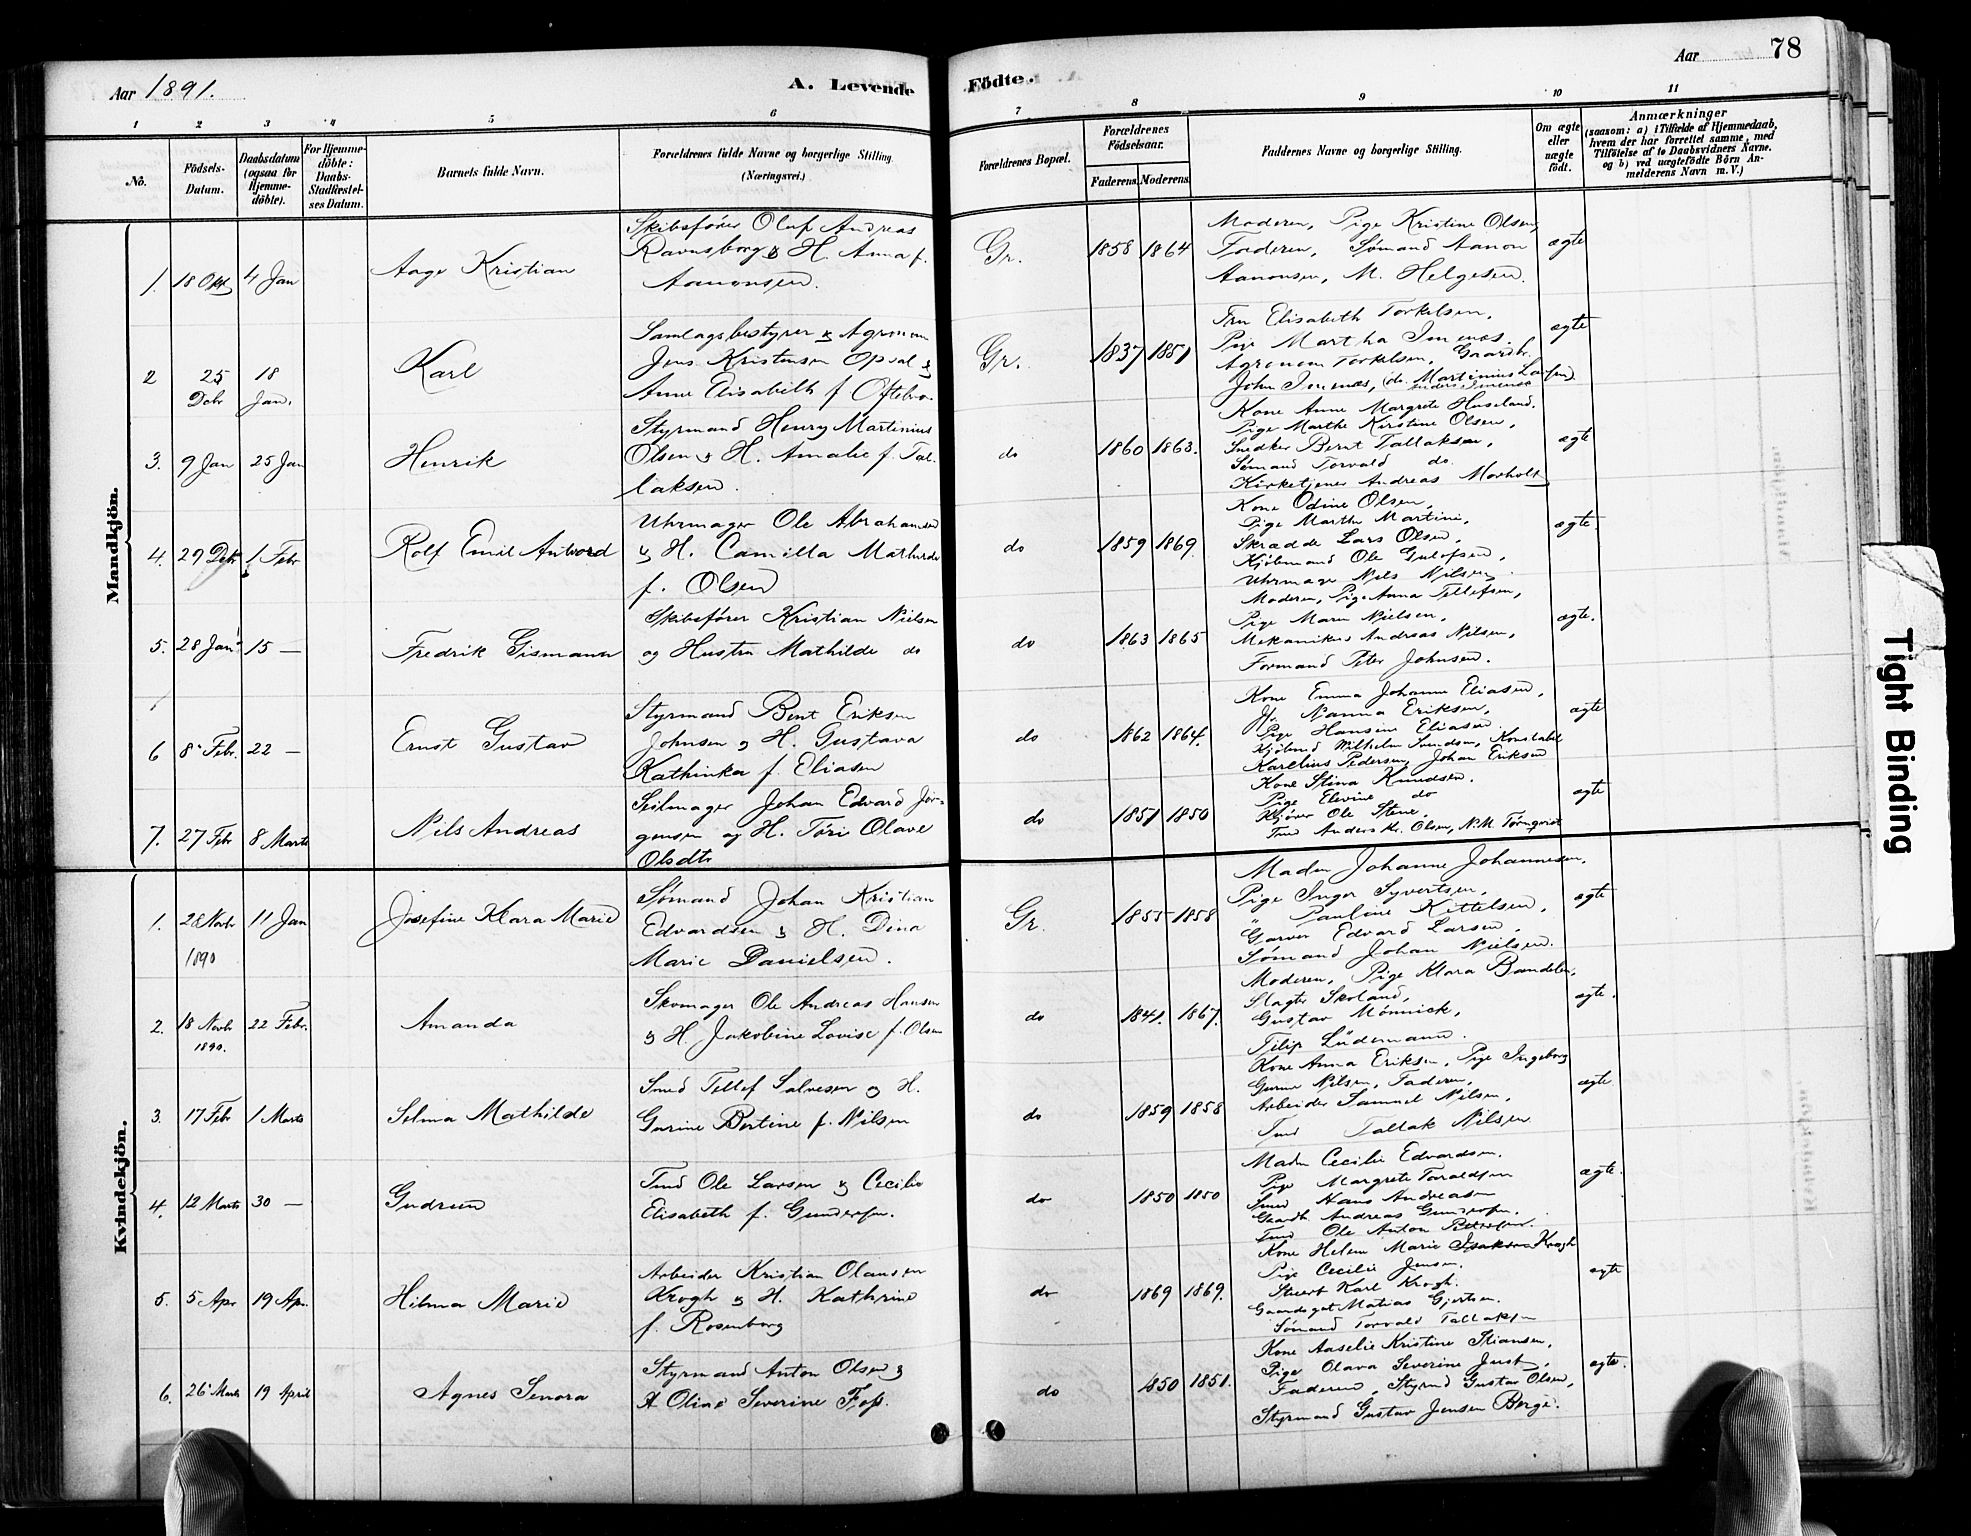 Aar 1891.
A. Levende
Födte.
Aar
78
1
2
3
4
5
6
7
8
9
10
11
No.
Födsels-
Datum.
Daabsdatum
(ogsaa for
Hjemme-
döbte).
For Hjemme-
döbte:
Daabs-
Stadfæstel-
ses Datum.
Barnets fulde Navn.
Forældrenes fulde Navne og borgerlige Stilling.
(Næringsvei.)
Forældrenes Bopæl.
Forældrenes
Födselsaar.
Faderens. Moderens.
Faddernes Navne og borgerlige Stilling.
Om ægte
eller
uægte
födt.
Anmærkninger
(saasom: a) i Tilfælde af Hjemmedaab,
hvem der har forrettet samme, med
Tilföielse af to Daabsvidners Navne,
og b) ved uægtefödte Börn An-
melderens Navn m. V.)
Mandkjön.
1. 18 Okt 4 Jan
Aage Kristian
Skibsfører Oluf Andreas
Ravnsborg & H. Anna f.
Aanonsen.
Gr. 1858 1864
Moderen, Pige Kristine Olsen,
Faderen, Sømand Aanon
Aanonsen, M. Helgesen.
ægte
2 25 Debr 18 Jan.
Karl
Samlagsbestyrer & Agronom
Jens Kristensen Opsal &
Anne Elisabeth f. Oftebro.
Gr. 1837 1851
Fru Elisabeth Torkelsen,
Pige Martha Imenes.
Agronom Torkelsen, Gaardb.
John Imenes, (do. Martinius Larsen)
ægte
3. 9 Jan 25 Jan
Henrik
Styrmand Henry Martinius
Olsen & H. Amalie f. Tal-
laksen.
do 1860 1863.
Kone Anne Margrete Huseland.
Pige Marthe Kirstine Olsen,
Snedker Bernt Tallaksen,
Sømand Torvald do.
Kirketjener Andreas Morholt
ægte
4. 29 Debr 1 Febr
Rolf Emil Antword
Uhrmager Ole Abrahamsen
& H. Camilla Mathilde
f. Olsen
do 1859 1869.
Kone Odine Olsen,
Pige Marthe Martini,
Skrædder Lars Olsen,
Kjøbmand Ole Gulofsen,
Uhrmager Nils Nilsen.
ægte.
5. 28 Jan. 15 —
Fredrik Gismann
Skibsfører Kristian Nielsen
og Hustru Mathilde do
do 1863 1865
Moderen, Pige Anna Tellefsen,
Pige Maren Nielsen,
Mekanikus Andreas Nilsen,
Formand Peter Johnsen.
ægte.
6 8 Febr. 22 —
Ernst Gustav
Styrmand Bent Eriksen
Johnsen & H. Gustava
Kathinka f. Eliasen
do 1862 1864.
Kone Emma Johanne Eliasen,
Jf. Nanna Eriksen,
Pige Hansine Eliasen.
Kjøbmd Wilhelm Svendsen, Konstabel
Karelius Pedersen, Johan Eriksen
ægte
7. 27 Febr 8 Marts
Nils Andreas
Seilmager Johan Edvard Jør-
gensen og H. Tøri Olave
Olsdtr
do 1851 1850
Kone Stina Knudsen.
Pige Elevine do
Ole Stene,
Tmd Anders Kr. Olsen, N. M. Tørnqvist
ægte
Kvindekjön.
1. 28 Novbr 1890 11 Jan
Josefine Klara Marie
Sømand Johan Kristian
Edvardsen & H. Dina
Marie Danielsen.
Gr. 1855 1858
Madm Johanne Johannesen,
Pige Inger Syvertsen,
" Pauline Kittelsen,
Garver Edvard Larsen,
Sømand Johan Nielsen.
ægte
2. 18 Novbr 1890. 22 Febr.
Amanda
Skomager Ole Andreas Hansen
& H. Jakobine Lovise f. Olsen
do 1841. 1867.
Moderen, Pige Klara Bandelen,
Slagter Skoland,
Gustav Mønnick,
Filip Lüdemann.
ægte.
3. 17 Febr 1 Marts
Selma Mathilde
Smed Tellef Salvesen og H.
Garine Bertine f. Nilsen
do 1859 1858
Kone Anna Eriksen, Pige Ingeborg
Gurine Nilsen, Faderen,
Arbeider Samuel Nilsen,
Tmd Tallak Nilsen
ægte.
4. 12 Marts 30 —
Gudrun
Tmd Ole Larsen & Cecilie
Elisabeth f. Gundersen.
do 1850 1850
Madm Cecilie Edvardsen.
Pige Margrete Toraldsen
Smed Hans Andreasen
Gaardb. Andreas Gundersen.
Tmd Ole Anton Pettersen.
ægte.
5. 5 Apr 19 Apr.
Hilma Marie
Arbeider Kristian Olausen
Krogh & H. Kathrine
f. Rosenborg
do 1869 1869.
Kone Helene Marie Isaksen Krogh
Pige Cecilie Jensen.
Stuert Karl Krogh.
Gaardsgut Matias Gjertsen.
Sømand Torvald Tallaksen
ægte
6. 26 Marts 19 April
Agnes Senora
Styrmand Anton Olsen &
H Oline Severine Foss.
do 1850 1851.
Kone Aaselie Kristine Stiansen,
Pige Olava Severine Just,
Faderen, Styrmd Gustav Olsen,
Styrmand Gustav Jensen Berge.
ægte.
Tight Binding